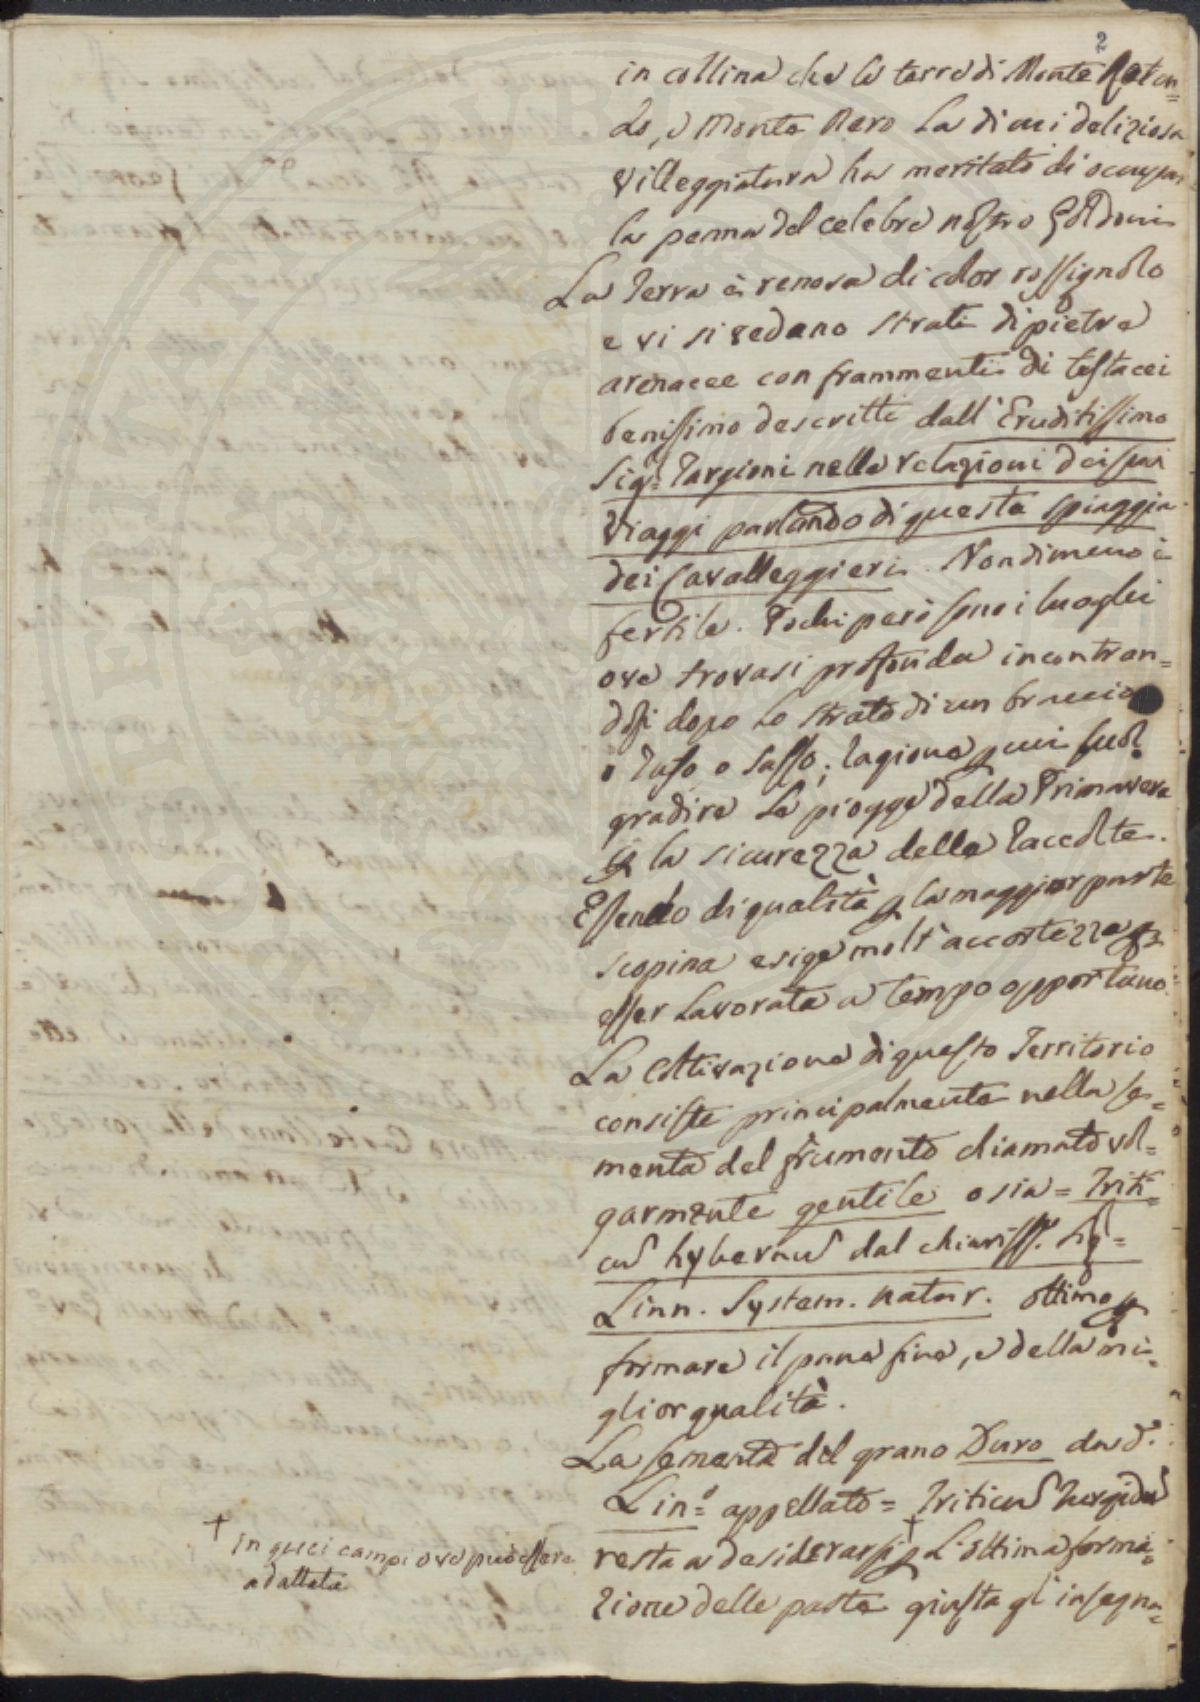 2
in collina che le terre di Monte Roton=
do, e Monte Nero La di cui deliziosa
villeggiatura ha meritato di occupar
la penna del celebre nostro Goldoni
La Terra è renosa di color rossignolo
e vi si vedono strati di pietre
arenacee con frammenti di testacei
benissimo descritti dall'Eruditissimo
Sig.r Targioni nelle relazioni dei suoi
Viaggi parlando di questa spiaggia
dei Cavalleggieri. Nondimeno è
fertile. Pochi però sono i luoghi
ove trovasi profonda incontran=
dosi dopo lo strato di un braccio
o Tufo o Sasso; ragione p cui suol
gradire le piogge della Primavera
p la sicurezza delle raccolte.
Essendo di qualità p la maggior parte
scopina esige molt'accortezza p
esser lavorata a tempo opportuno.
La coltivazione di questo Territorio
consiste principalmente nella se=
menta del frumento chiamato vol=
garmente gentile o sia = Triti=
cũ hybernũ dal chiariss.o Sig.=
Linn. System. natur. ottimo p
formare il pane fine, e della mi=
glior qualità.
La sementa del grano Duro da d.o
Lin.o appellato = Triticũ turgidũ
resta a desiderarsi + p L'ottima forma=
zione delle paste giusta gl'insegna=
+ in quei campi ove può essere
adattata